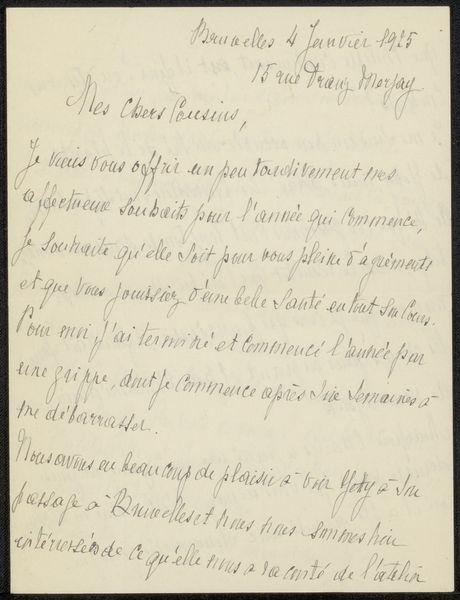 Bruxelles 4 Janvier 1925
15 rue Franz Merjay
Mes chers Cousins,
Je viens vous offrir un peu tardivement mes
affectueux souhaits pour l'année qui commence,
Je souhaite qu'elle soit pour vous pleine d'agréments
et que vous jouissiez d'une belle santé en tout son cours.
Pour moi, j'ai terminé et commencé l'année par
une grippe, dont je commence après six semaines à
me débarrasser.
Nous avons eu beaucoup de plaisir à voir à son
passage à Bruxelles et nous nous sommes bien
intéressés de ce qu'elle nous a raconté de l'atelier